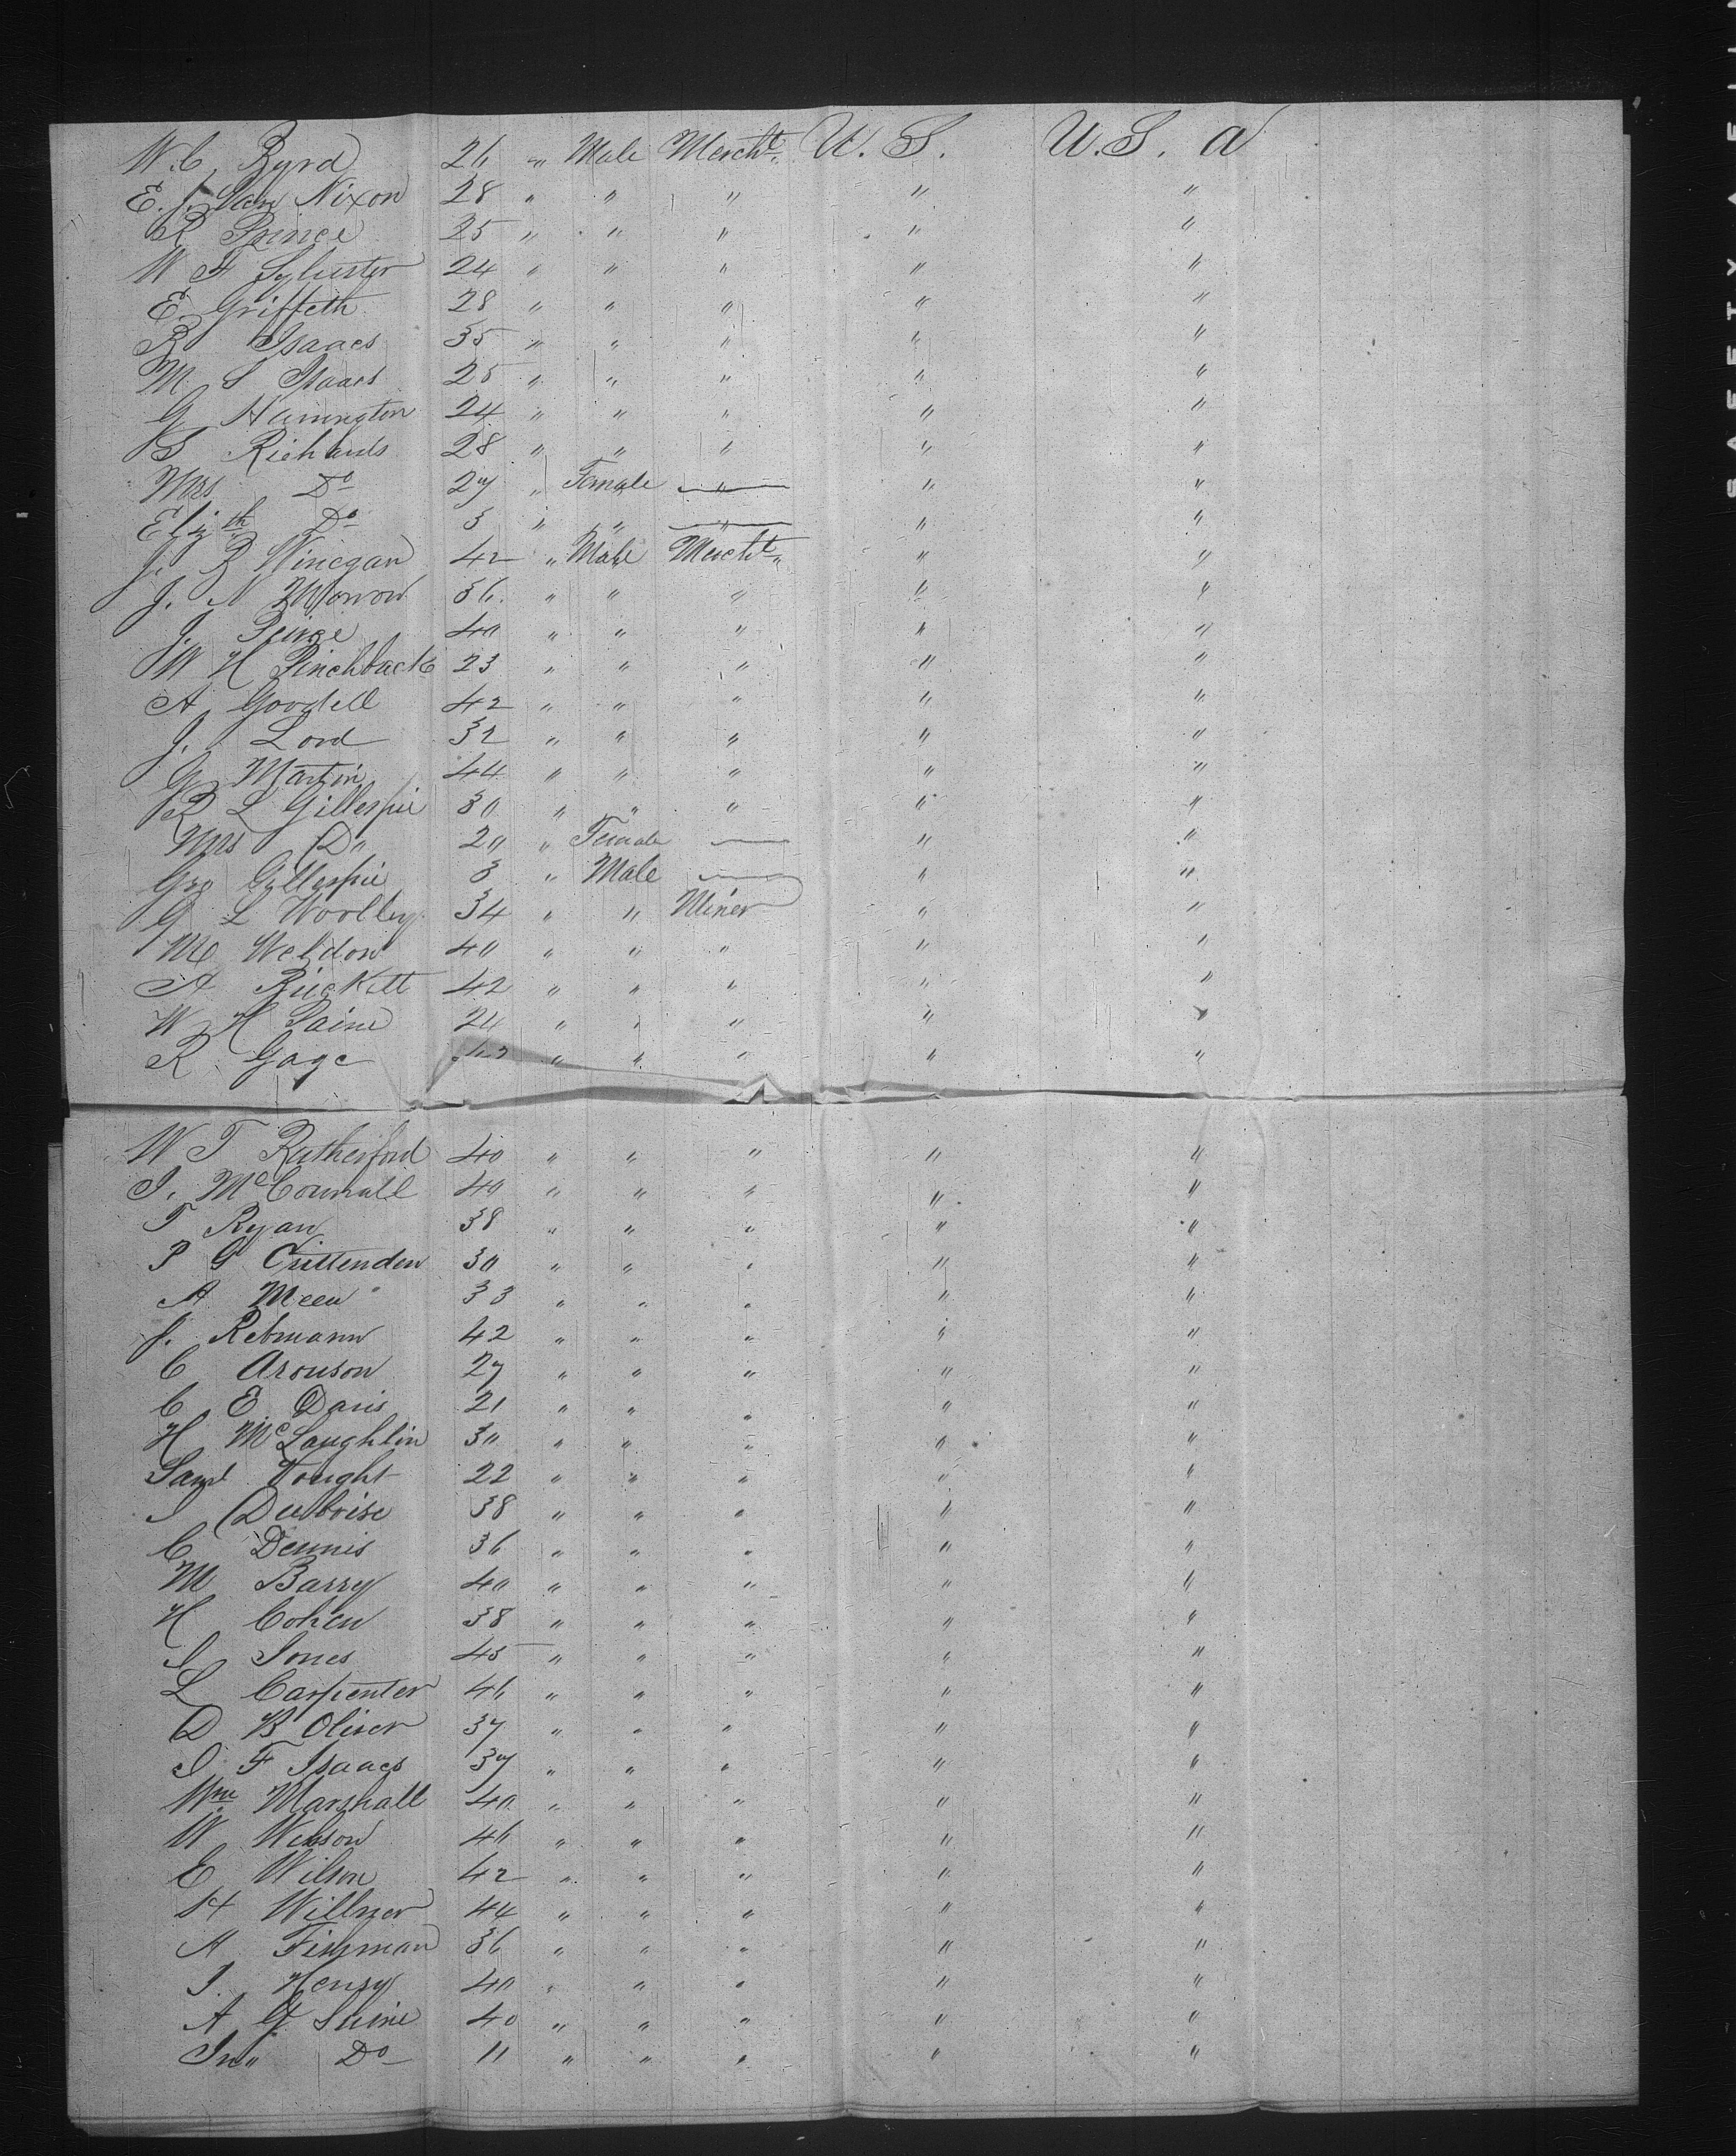 W. C. Byrd 26 " Male Mercht. U. S. U. S. a
E. J. Van Nixon 28 " " " " "
R Prince 25 " " " " "
W F Sylvester 24 " " " " "
E. Griffeth 28 " " " " "
B Isaacs 35 " " " " "
M S Isaacs 25 " " " " "
G Harrington 24 " " " " "
S Richards 28 " " " " "
Mrs Do 27 " Female " " "
Elizth Do 3 " " " " "
J. B Winegar 42 " Male Mercht " "
J. N Morrow 36 " " " " "
J. 40 " " " " "
W H Pinchback 23 " " " " "
A Goodell 42 " " " " "
J. Lord 32 " " " " "
G Martin 44 " " " " "
R L Gillespie 30 " " " " "
Mrs Do 20 " Female — " "
Geo Gillespie 3 " Male — " "
G L Woolley 34 " " Miner " "
M Weldon 40 " " " " "
A Rickett 42 " " " " "
W H Paine 24 " " " " "
R Gage " " " " "
W T Rutherford 40 " " " " "
J. McConnall 40 " " " " "
T Ryan 38 " " " " "
P G Crittenden 30 " " " " "
A Meen 33 " " " " "
J. Rebmann 42 " " " " "
C Aronson 27 " " " " "
C E Davis 21 " " " " "
H McLaughlin 30 " " " " "
Saml Vought 22 " " " " "
J Duboise 38 " " " " "
C Dennis 36 " " " " "
M Barry 40 " " " " "
H Cohen 38 " " " " "
J Jones 45 " " " " "
L Carpenter 46 " " " " "
D B Oliver 37 " " " " "
J F Isaacs 37 " " " " "
Wm Marshall 40 " " " " "
W 46 " " " " "
E Wilson 42 " " " " "
H Willner 44 " " " " "
A 36 " " " " "
J. Henry 40 " " " " "
A G 40 " " " " "
Jno Do 11 " " " " "
SAFETY